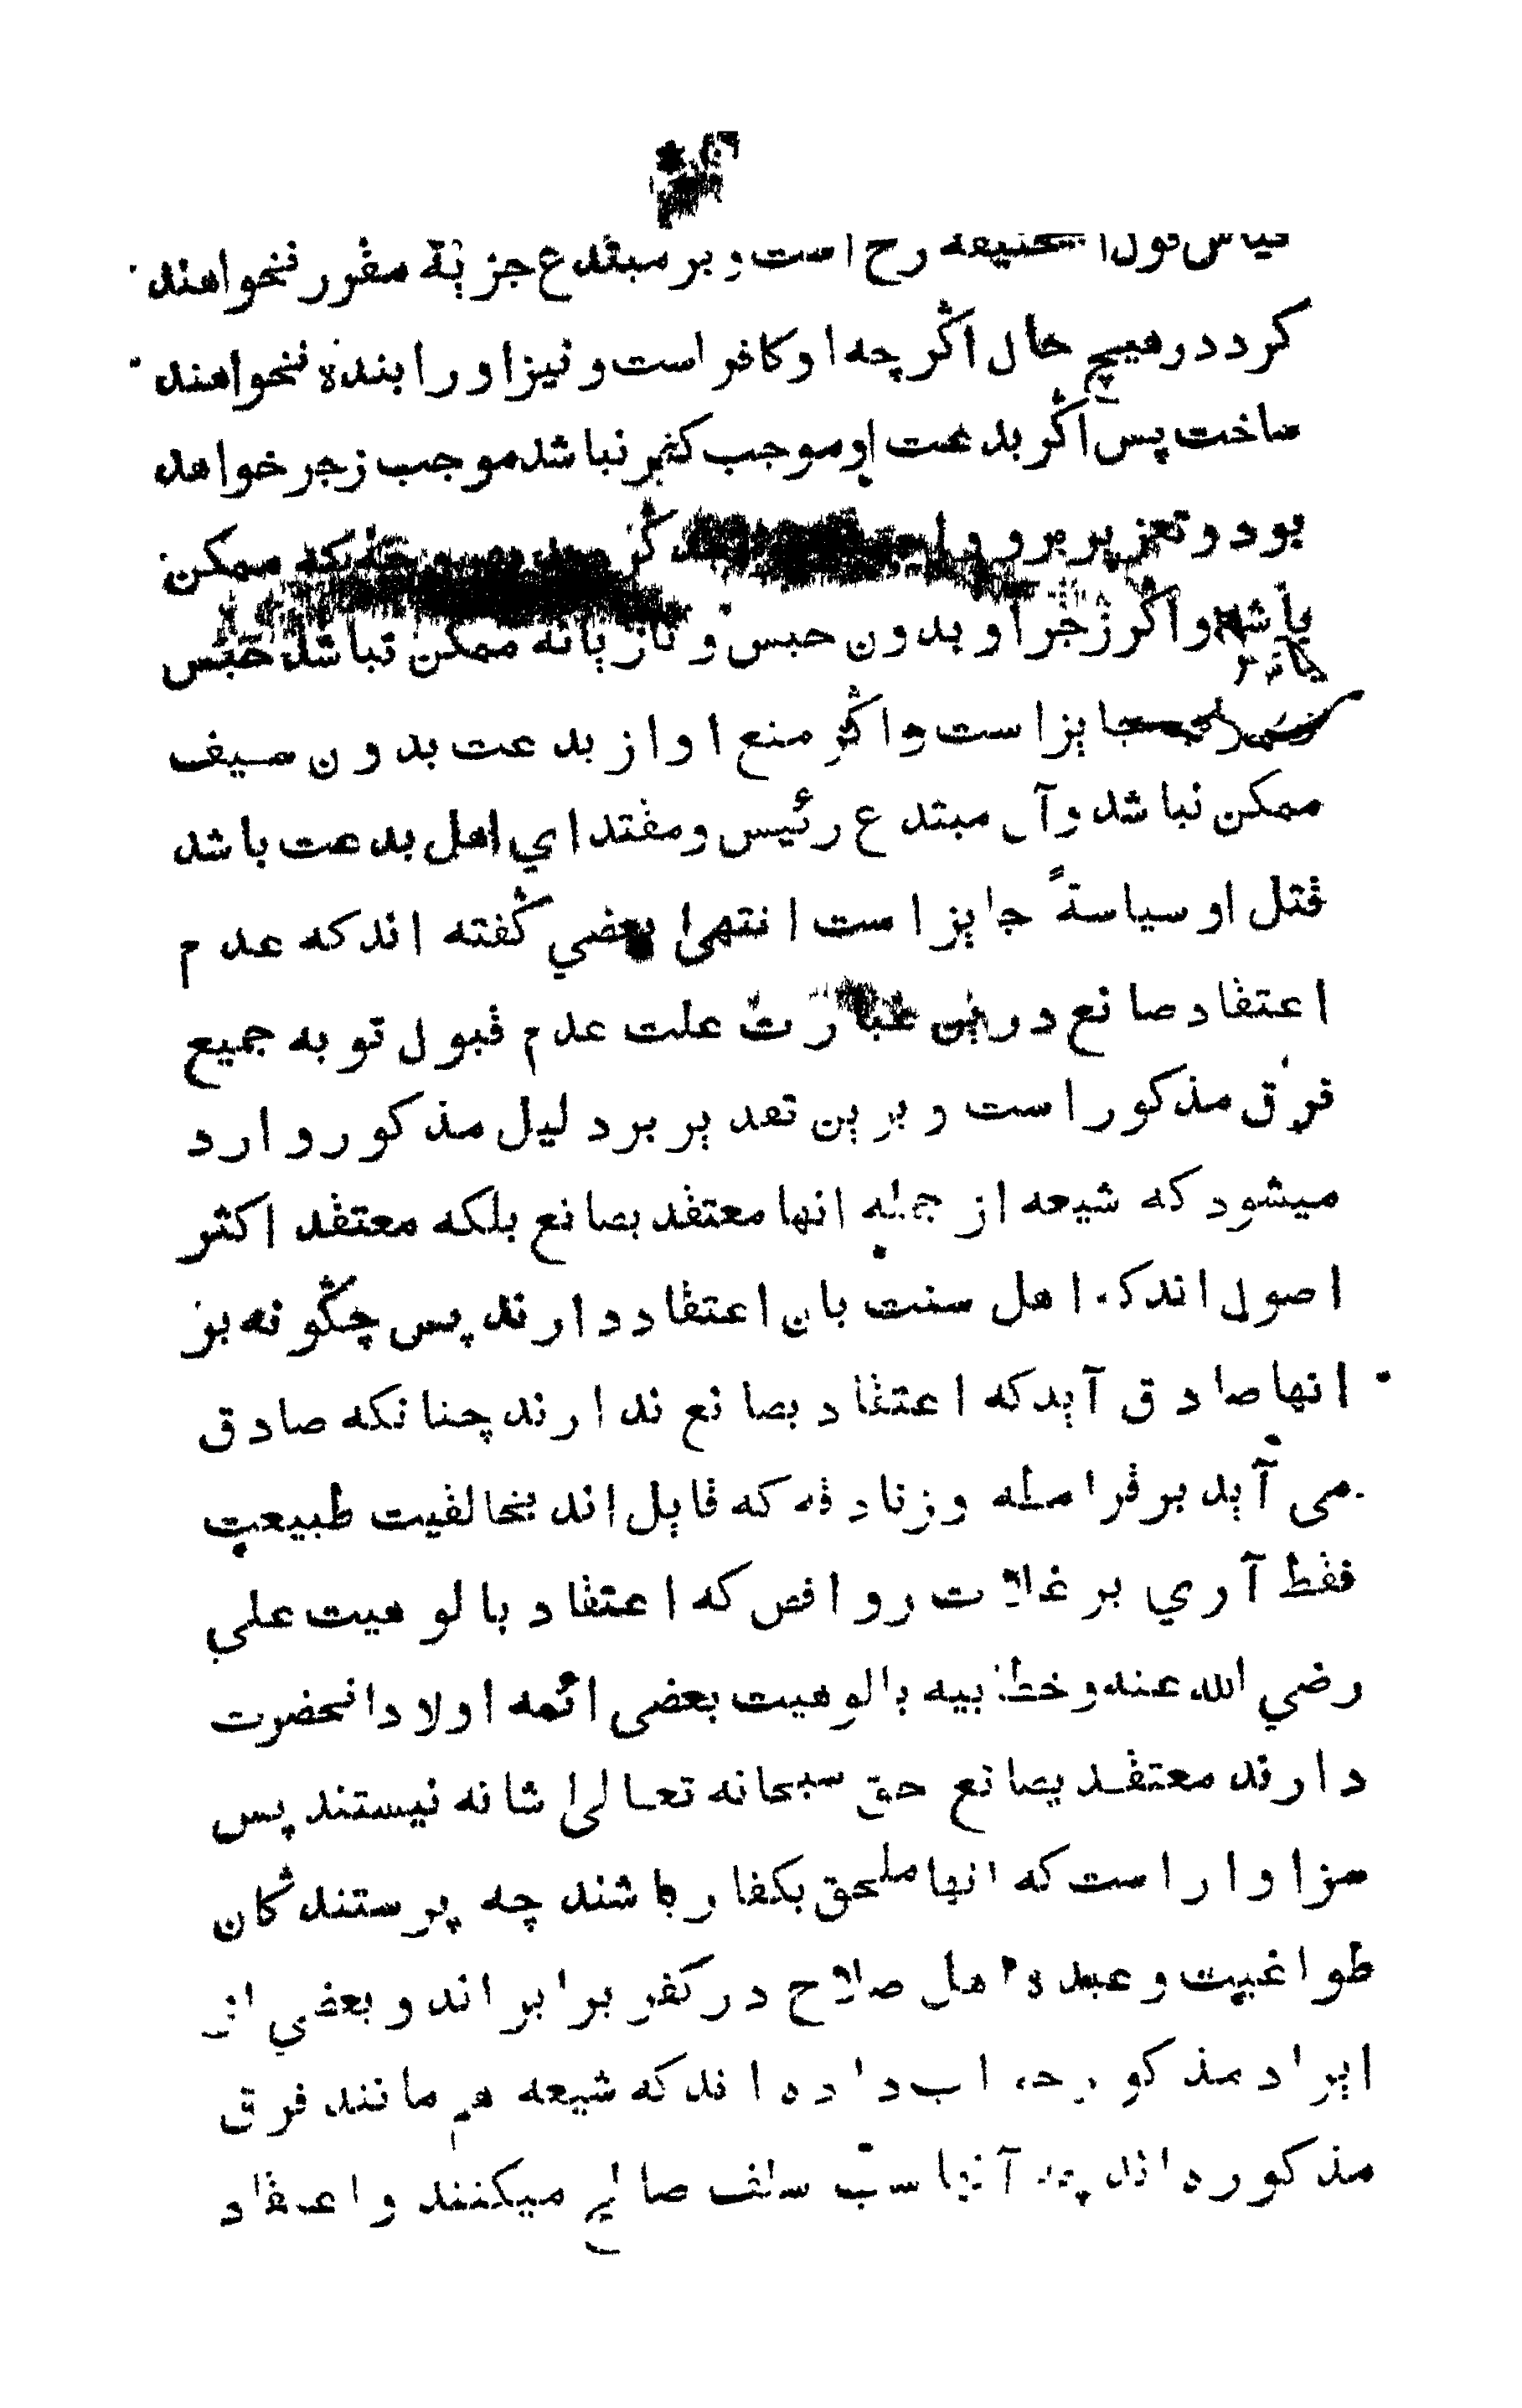 قیاس قول ا رح است و بر مبتدع جزیة مقرر نخواهند
کرد در هیچ حال اگر چه او کافر است و نیز او را بنده نخواهند
ساخت پس اگر بدعت او موجب کفر نباشد موجب زجر خواهد
بود و تعزیر برو که ممکن
باشد و اگر زجر او بدون حبس و تازیانه ممکن نباشد حبس
جایز است و اگر منع او از بدعت بدون سیف
ممکن نباشد و آن مبتدع رئیس و مقتدای اهل بدعت باشد
قتل او سیاسةً جایز است انتهی بعضي گفته اند که عدم
اعتقاد صانع درین عبارت علت عدم قبول توبه جمیع
فرق مذکور است و برین تقدیر برد لیل مذکور وارد
میشود که شیعه از جمله انها معتقد بصانع بلکه معتقد اکثر
اصول اند که اهل سنت بان اعتقاد دارند پس چگونه بر
انها صادق آید که اعتقاد بصانع ندارند چنانکه صادق
می آید بر قرامطه و زنادقه که قایل اند بخالقیت طبیعت
فقط آري بر غلات روافض که اعتقاد بالوهیت علي
رضي الله عنه و خطابیه بالوهیت بعضی ائمه اولاد انحضرت
دارند معتقد بصانع حق سبحانه تعالی شانه نیستند پس
سزاوار است که انها ملحق بکفار باشند چه پرستندگان
طواغیت و عبده اهل صلاح در کفر برابر اند و بعضي از
ایراد مذکور جواب داده اند که شیعه هم مانند فرق
مذکوره اند چه آنها سب سلف صالح میکنند و اعتقاد